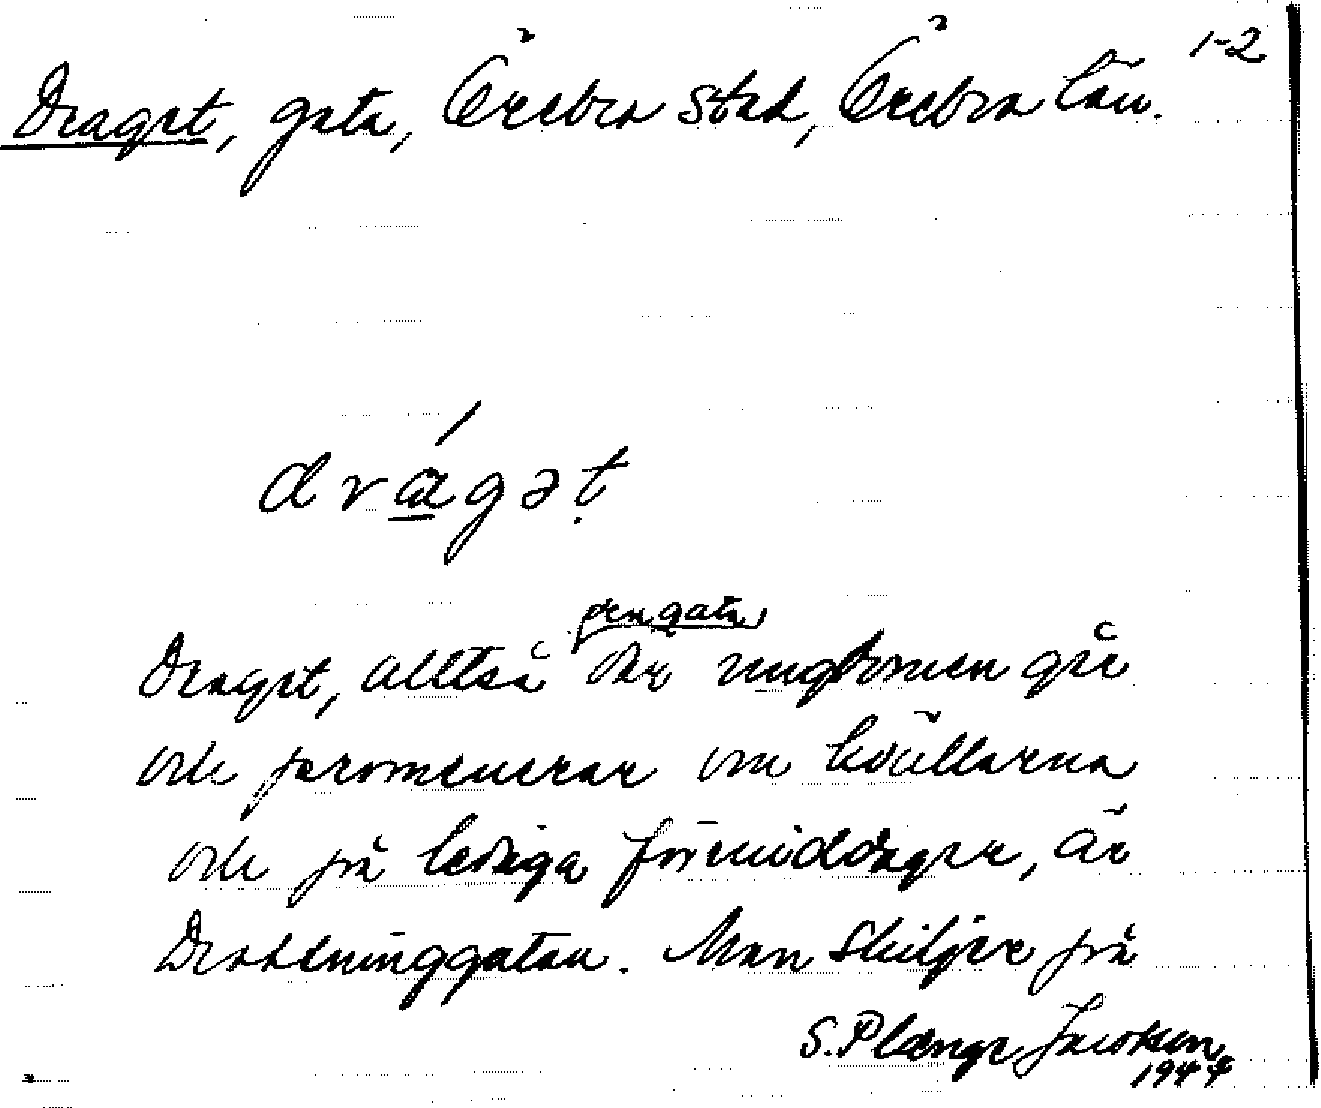 1-2
Draget, gata, Örebro stad, Örebro län.
drágət
den gata
Draget, alltså där ungdomen går
och promenerar om kvällarna
och på lediga förmiddagar, är
Drottninggatan. Man skiljer på
S. Plænge Jacobson
1944